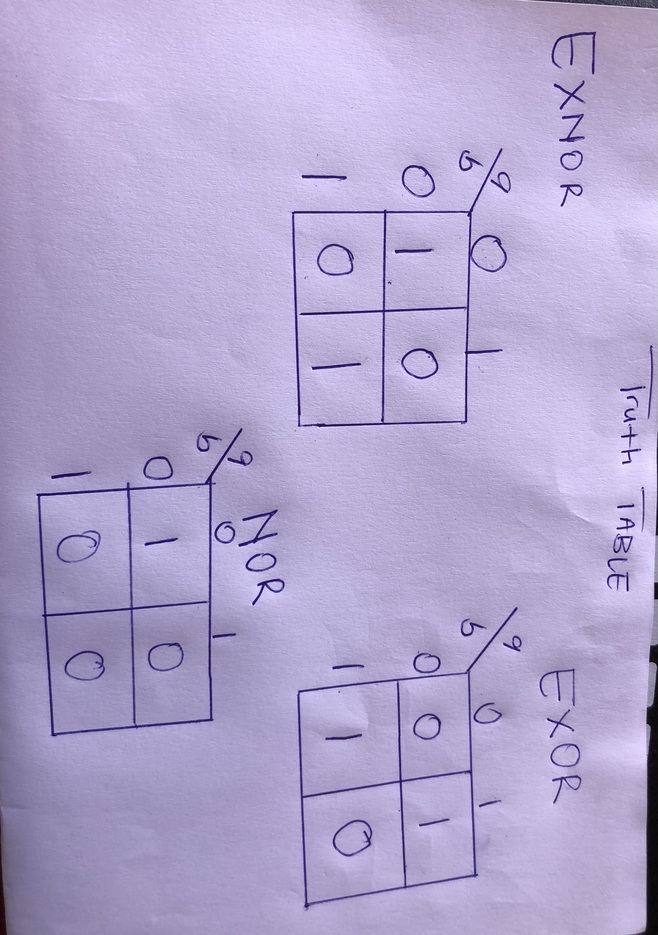 Truth TABLE
EXNOR
a 0 1
b
0 1 0
1 0 1
EXOR
a 0 1
b
0 0 1
1 1 0
NOR
a 0 1
b
0 1 0
1 0 0